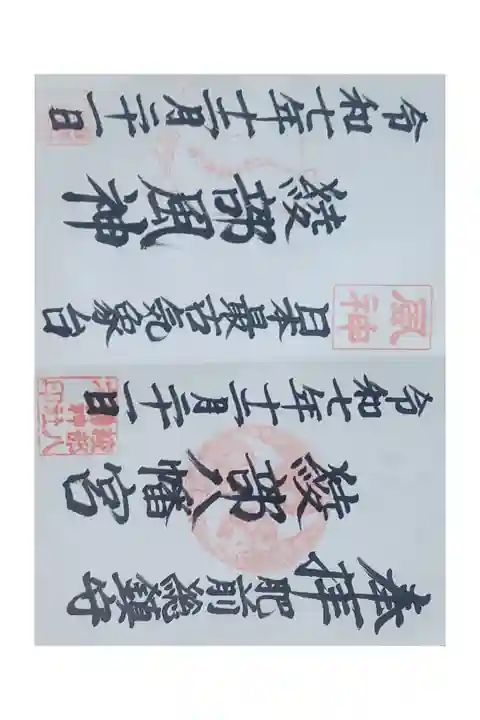 奉拝 肥前總鎮守
綾部八幡宮
令和七年十二月二十一日
綾部八幡神社之印
風神
日本最古気象台
綾部風神
令和七年十二月二十一日